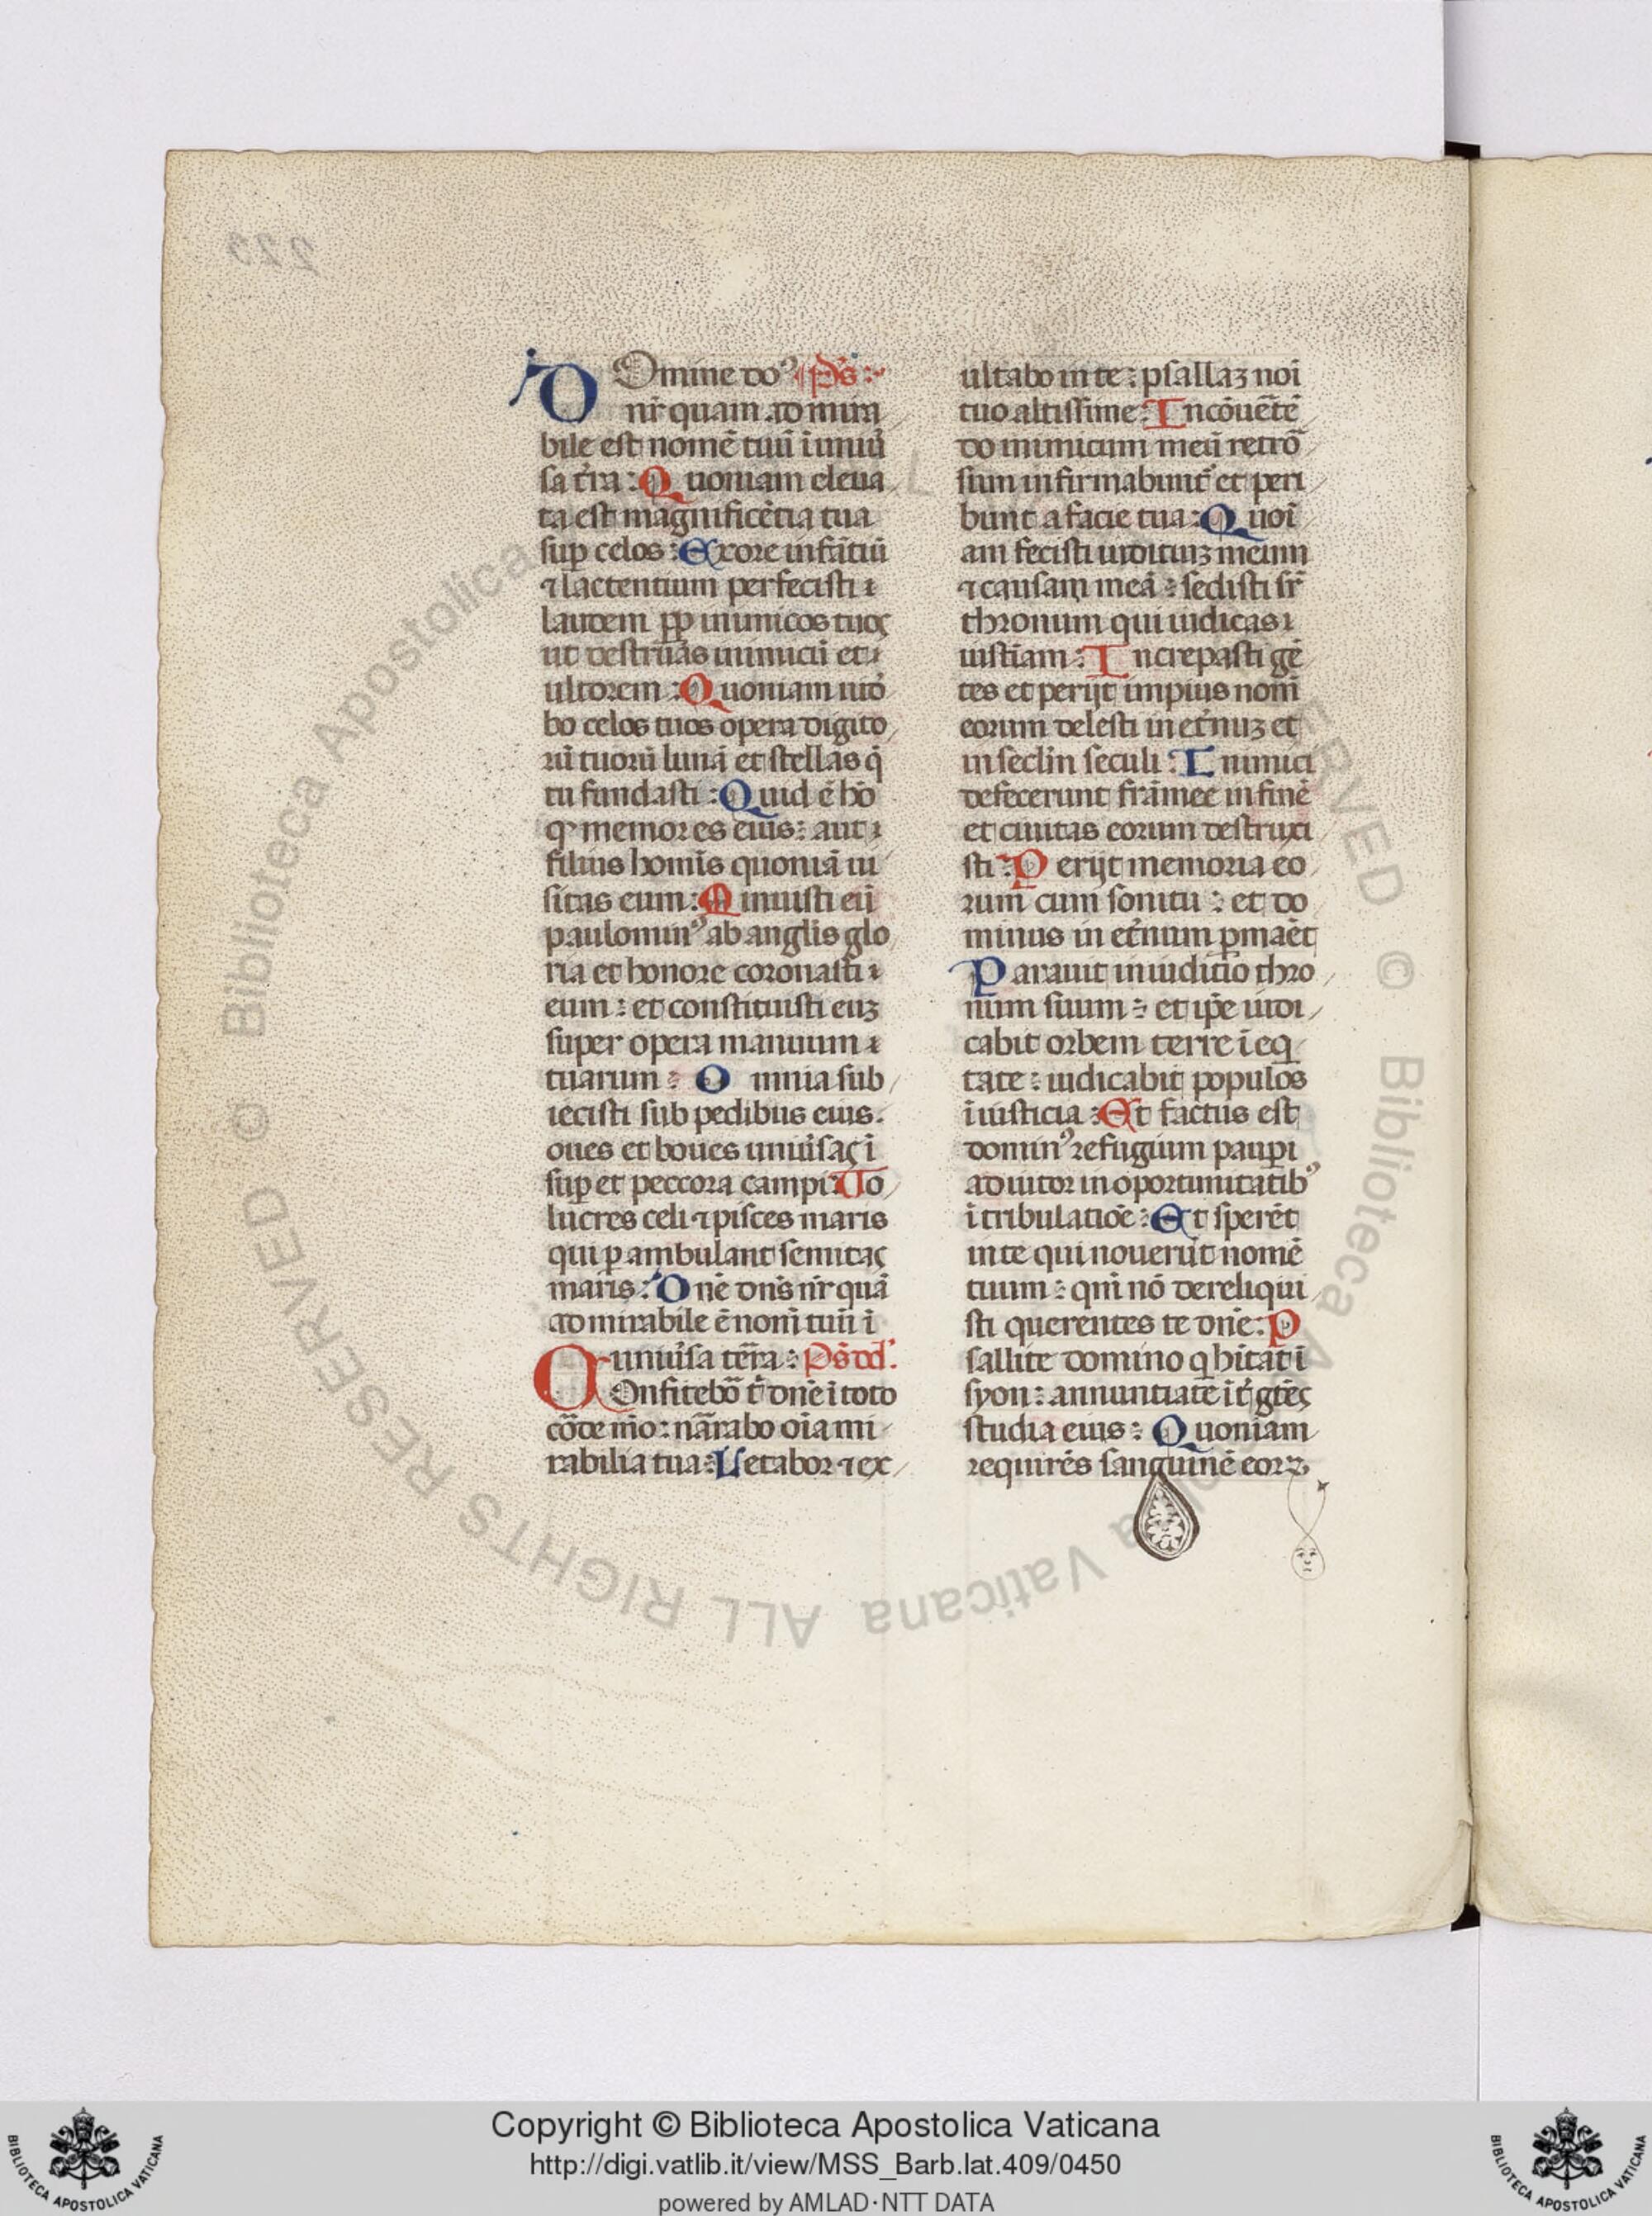 223
Domine do⁹ Ps̄:
nr̄ quam admira
bile est nomē tuū ī uniu͛
sa tr̄ra: Quoniam eleua
ta est magnificētia tua
suꝑ celos: Ex ore infātiū
⁊ lactentium perfecisti
laudem ꝓꝑ inimicos tuos
ut destruas inimicū et
ultorem: Quoniam uide
bo celos tuos opera digito
rū tuorū lunā et stellas q̄
tu fundasti: Quid ē hō
ꝙ memor es eius: aut
filius homīs quoniā ui
sitas eum: Minuisti eū
paulomin⁹ ab anglis glo
ria et honore coronasti
eum: et constituisti euȝ
super opera manuum
tuarum: Omnia sub
iecisti sub pedibus eius.
oues et boues uniu͛sas ī
suꝑ et peccora campi: Uo
lucres celi ⁊ pisces maris
qui ꝑambulant semitas
maris: Dn̄e dn̄s nr̄ quā
admirabile ē nom̄ tuū ī
uniu͛sa terra: Ps̄ dd.
Confitebor t̄ dn̄e ī toto
corde m̄o: narrabo oīa mi
rabilia tua: Letabor ⁊ ex
ultabo in te: psallaȝ noī
tuo altissime: In cōuētē
do inimicum meū retrō
sum infirmabunt͛ et peri
bunt a facie tua: Quoī
am fecisti iuditiuȝ meum
⁊ causam meā: sedisti sr̄
thronum qui iudicas
iustiam: Increpasti gē
tes et perijt impius nom̄
eorum delesti in et͛nuȝ et
in sec̄lm seculi: Inimici
defecerunt framee in finē
et ciuitas eorum destruxi
sti: Perijt memoria eo
rum cum sonitu: et do
minus in et͛num ꝑmaēt
Parauit in iuditio thro
num suum: et ip̄e iudi
cabit orbem terre ī eq̄
tate: iudicabit populos
ī iusticia: Et factus est
domin⁹ refugium pauꝑi
adiutor in oportunitatib⁹
ī tribulatiōe: Et sperēt
in te qui nouerūt nomē
tuum: qm̄ nō dereliqui
sti querentes te dn̄e: P
sallite domino q̄ hītat ī
syon: annuntiate īt͛ gētes
studia eius: Quoniam
requirēs sanguinē eorꝝ
© Biblioteca Apostolica Vaticana ALL RIGHTS RESERVED
Copyright © Biblioteca Apostolica Vaticana
http://digi.vatlib.it/view/MSS_Barb.lat.409/0450
powered by AMLAD·NTT DATA
BIBLIOTECA APOSTOLICA VATICANA
BIBLIOTECA APOSTOLICA VATICANA